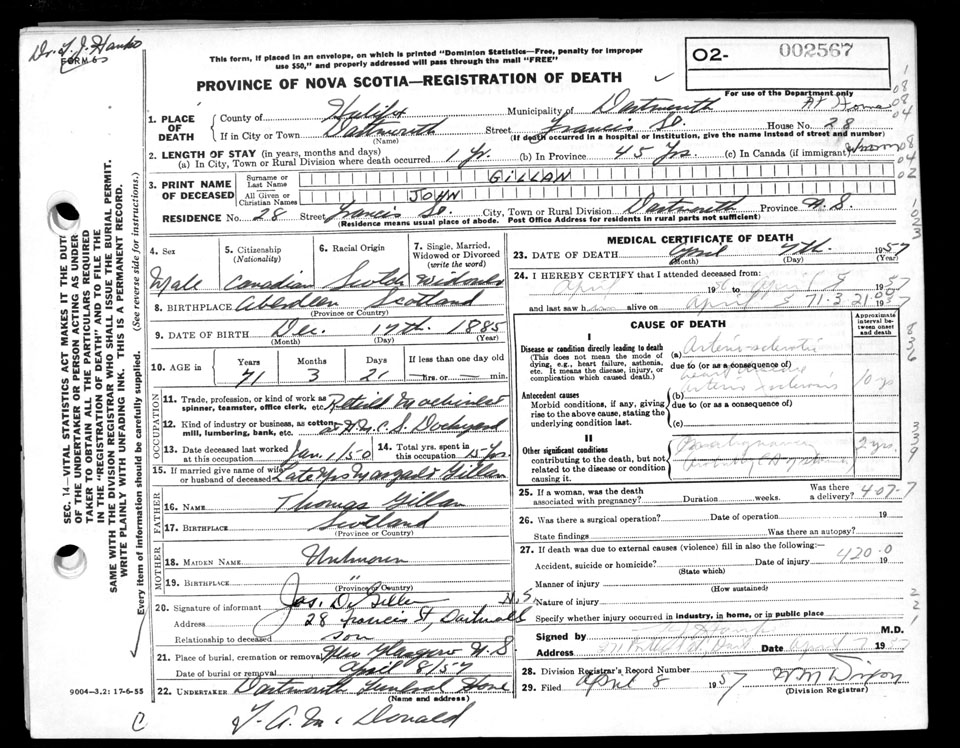 Dr. T. J.
FORM 6
This form, if placed in an envelope, on which is printed "Dominion Statistics—Free, penalty for improper
use $50," and properly addressed will pass through the mail "FREE"
O2- 002567
For use of the Department only
PROVINCE OF NOVA SCOTIA—REGISTRATION OF DEATH
1. PLACE OF DEATH
County of Halifax Municipality of Dartmouth At Home
If in City or Town Dartmouth Street Francis St. House No. 28
(Name) (If death occurred in a hospital or institution, give the name instead of street and number)
2. LENGTH OF STAY (in years, months and days)
(a) In City, Town or Rural Division where death occurred 1 yr. (b) In Province 45 Yrs. (c) In Canada (if immigrant)
3. PRINT NAME OF DECEASED
Surname or Last Name GILLAN
All Given or Christian Names JOHN
RESIDENCE No. 28 Street Francis St. City, Town or Rural Division Dartmouth Province N.S.
(Residence means usual place of abode. Post Office Address for residents in rural parts not sufficient)
4. Sex
Male
5. Citizenship (Nationality)
Canadian
6. Racial Origin
Scotch
7. Single, Married, Widowed or Divorced (write the word)
Widowed
8. BIRTHPLACE Aberdeen Scotland
(Province or Country)
9. DATE OF BIRTH Dec. 17th. 1885
(Month) (Day) (Year)
10. AGE in Years Months Days If less than one day old
71 3 21 hrs. or min.
OCCUPATION
11. Trade, profession, or kind of work as spinner, teamster, office clerk, etc. Retired Machinist
12. Kind of industry or business, as cotton mill, lumbering, bank, etc. at H.M.C.S. Dockyard
13. Date deceased last worked at this occupation Jan. 1/50 14. Total yrs. spent in this occupation 15 yrs.
15. If married give name of wife or husband of deceased Late Mrs Margaret Gillan
FATHER
16. NAME Thomas Gillan
17. BIRTHPLACE Scotland
MOTHER
18. MAIDEN NAME Unknown
19. BIRTHPLACE "
(Province or Country)
20. Signature of informant Jas. D. Gillan
Address 28 Francis St, Dartmouth N.S.
Relationship to deceased son
21. Place of burial, cremation or removal New Glasgow N.S.
Date of burial or removal April 8/57
22. UNDERTAKER Dartmouth Funeral Home
(Name and address)
T. A. McDonald
C
9004—3.2: 17-6-55
MEDICAL CERTIFICATE OF DEATH
23. DATE OF DEATH April 7th. 1957
(Month) (Day) (Year)
24. I HEREBY CERTIFY that I attended deceased from:
April 19 to April 5 1957
and last saw h alive on April 5 71.3.21.0 1957
CAUSE OF DEATH
Approximate interval between onset and death
I
Disease or condition directly leading to death
(This does not mean the mode of dying, e.g., heart failure, asthenia, etc. It means the disease, injury, or complication which caused death.)
(a) Arterio-sclerotic
due to (or as a consequence of)
Antecedent causes
Morbid conditions, if any, giving rise to the above cause, stating the underlying condition last.
(b) Arterio sclerosis 10 yrs
due to (or as a consequence of)
(c)
II
Other significant conditions
contributing to the death, but not related to the disease or condition causing it.
2 yrs.
25. If a woman, was the death associated with pregnancy? Duration weeks. Was there a delivery? 407-7
26. Was there a surgical operation? Date of operation 19
State findings Was there an autopsy?
27. If death was due to external causes (violence) fill in also the following:—
Accident, suicide or homicide? Date of injury 420.0 19
(State which)
Manner of injury
(How sustained)
Nature of injury
Specify whether injury occurred in industry, in home, or in public place
Signed by M.D.
Address 1957
28. Division Registrar's Record Number
29. Filed April 8 1957 W M Dixon
(Division Registrar)
SEC. 14—VITAL STATISTICS ACT MAKES IT THE DUTY
OF THE UNDERTAKER OR PERSON ACTING AS UNDER
TAKER TO OBTAIN ALL THE PARTICULARS REQUIRED
IN THE "REGISTRATION OF DEATH" AND TO FILE THE
SAME WITH THE DIVISION REGISTRAR WHO SHALL ISSUE THE BURIAL PERMIT.
WRITE PLAINLY WITH UNFADING INK. THIS IS A PERMANENT RECORD.
Every item of information should be carefully supplied. (See reverse side for instructions.)